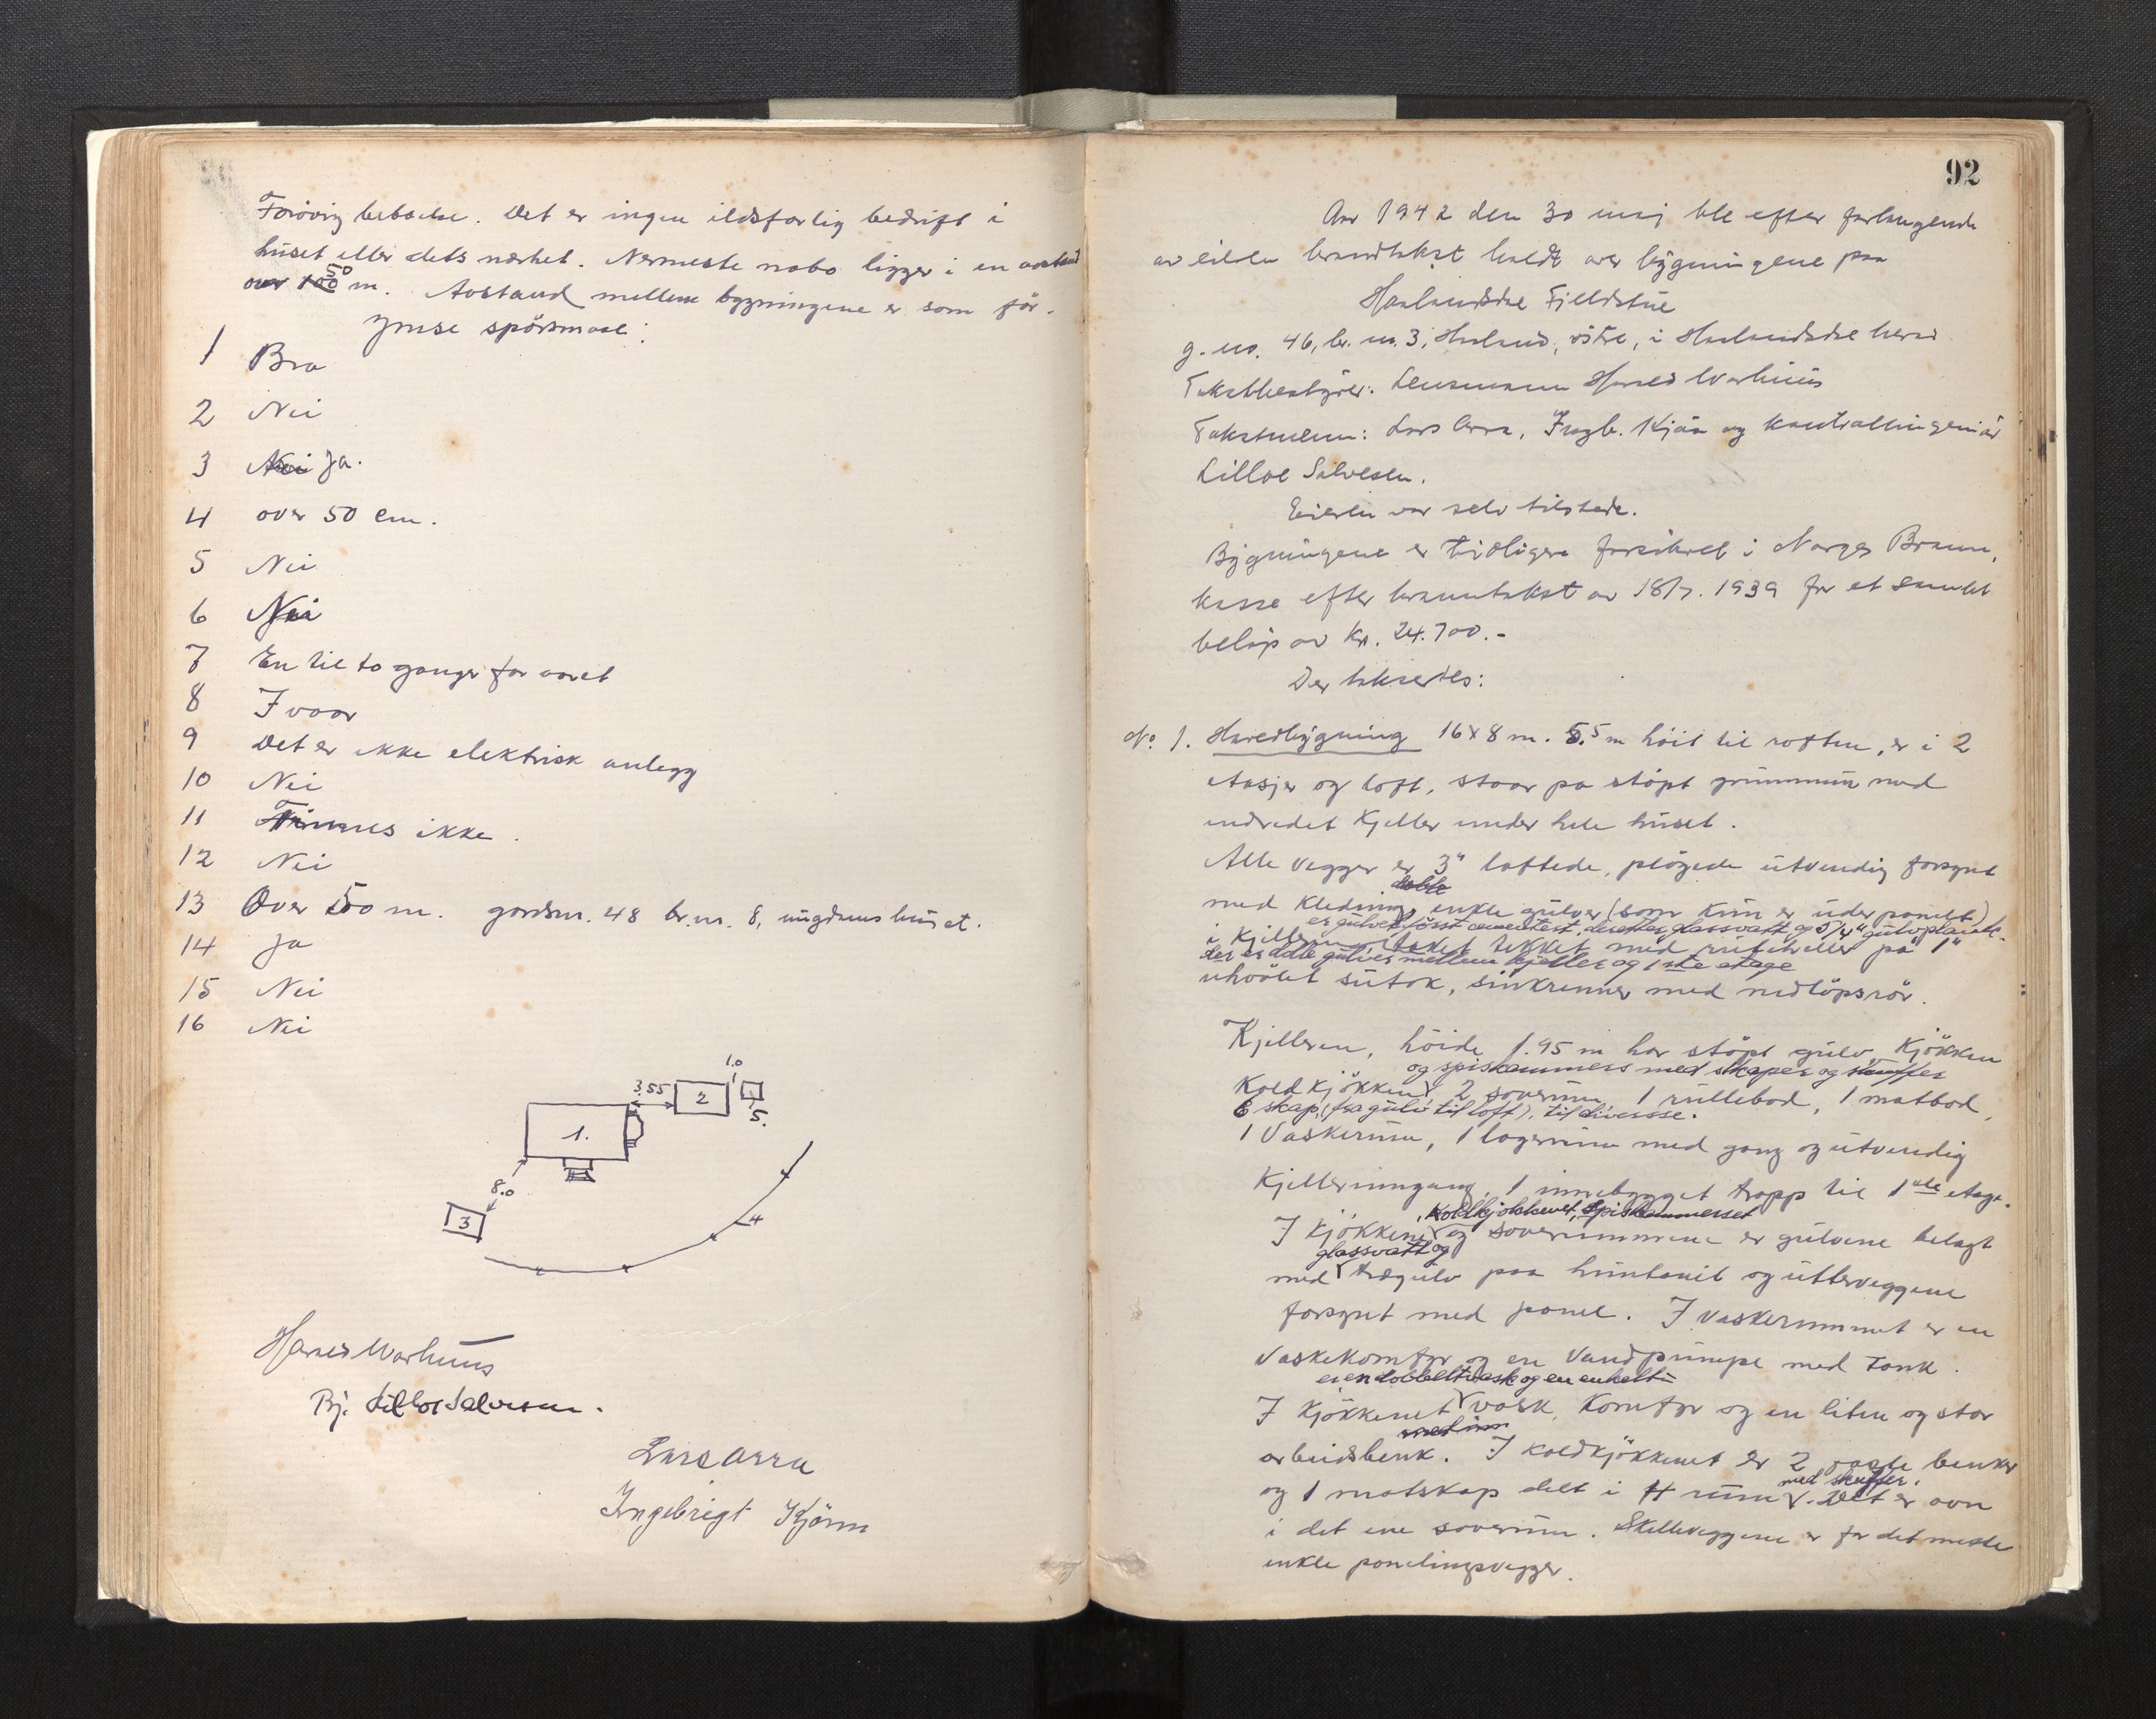 Forövrig beboelse. Det er ingen ildsfarlig bedrift i
huset eller dets nærhet. Nermeste nabo ligger i en avstand
50
over 100 m. Avstand mellem bygningene er som för.
Ymse spörsmaal:
1 Bra
2 Nei
3 Nei Ja.
4 over 50 cm.
5 Nei
6 Nei
7 En til to ganger for aaret
8 I vaar
9 Det er ikke elektrisk anlegg
10 Nei
11 Finnes ikke.
12 Nei
13 Over 500 m. gardsnr. 48 br.nr. 8, ungdomshuset.
14 Ja
15 Nei
16 Nei
1.0
3.55
2
5.
1.
8.0
3
4
Hanes Warhuus
Bj. Lilloe Salvesen.
Lars Arra
Ingebrigt Kjörn
92
Aar 1942 den 30 maj ble efter forlangende
av eieren brandtakst holdt over bygningene paa
Haalandsdal Fjeldstue
g. no. 46, br. nr. 3, Haaland, östre, i Haalandsdal herad
Takstbestyrer: Lensmann Hanes Warhuus
Takstmenn: Lars Arra, Ingb. Kjön og kontrollingeniör
Lilloe Salvesen.
Eieren var selv tilstede.
Bygningene er tidligere forsikret i Norges Brann.
kasse efter branntakst av 18/7. 1939 for et samlet
belöp av kr. 24.700.-
Der takseredes:
No 1. Hovedbygning 16x8 m. 5.5 m höit til röstten, er i 2
etasjer og loft, staar pa stöpt grunnmur med
indredet kjeller under hele huset.
Alle vegger er 3" laftede, plöyede utvendig forsynt
doble
med kledning, enkle gulver (som kun er underpanelt)
er gulvet först cementert, derefter glassvatt og 5/4" gulvplank.
i kjelleren taket tekket med ruteheller på 1"
der er doble gulver mellem kjeller og 1ste etage
uhövlet sutak, sinkrenner med nedlöpsrör.
Kjelleren, höide 1.95 m har stöpt gulv, Kjökken
og spiskammers med skaper og skuffer
Koldkjökken, 2 soverum, 1 rullebod, 1 matbod,
6 skap, (fra gulv til loft), til diverse.
1 Vaskerum, 1 lagerrum med gang og utvendig
Kjellerinngang, 1 innebygget trapp til 1ste etage.
, Koldkjökkenet, Spiskammerset
I kjökkene og soverummene er gulvene belagt
glassvatt og
med tregulv paa huntonit og utterveggene
forsynt med panel. I vaskerummet er en
Vaskekomfyr og en Vandpumpe med Tank.
er en dobbelt vask og en enkelt
I Kjökkenet vask, Komfyr og en liten og stor
arbeidsbenk. I koldkjökkenet er 2 faste benker
med skuffer.
og 1 matskap delt i 4 rum. Det er ovn
i det ene soverum. Skilleveggene er for det meste
enkle panelingsvegger.